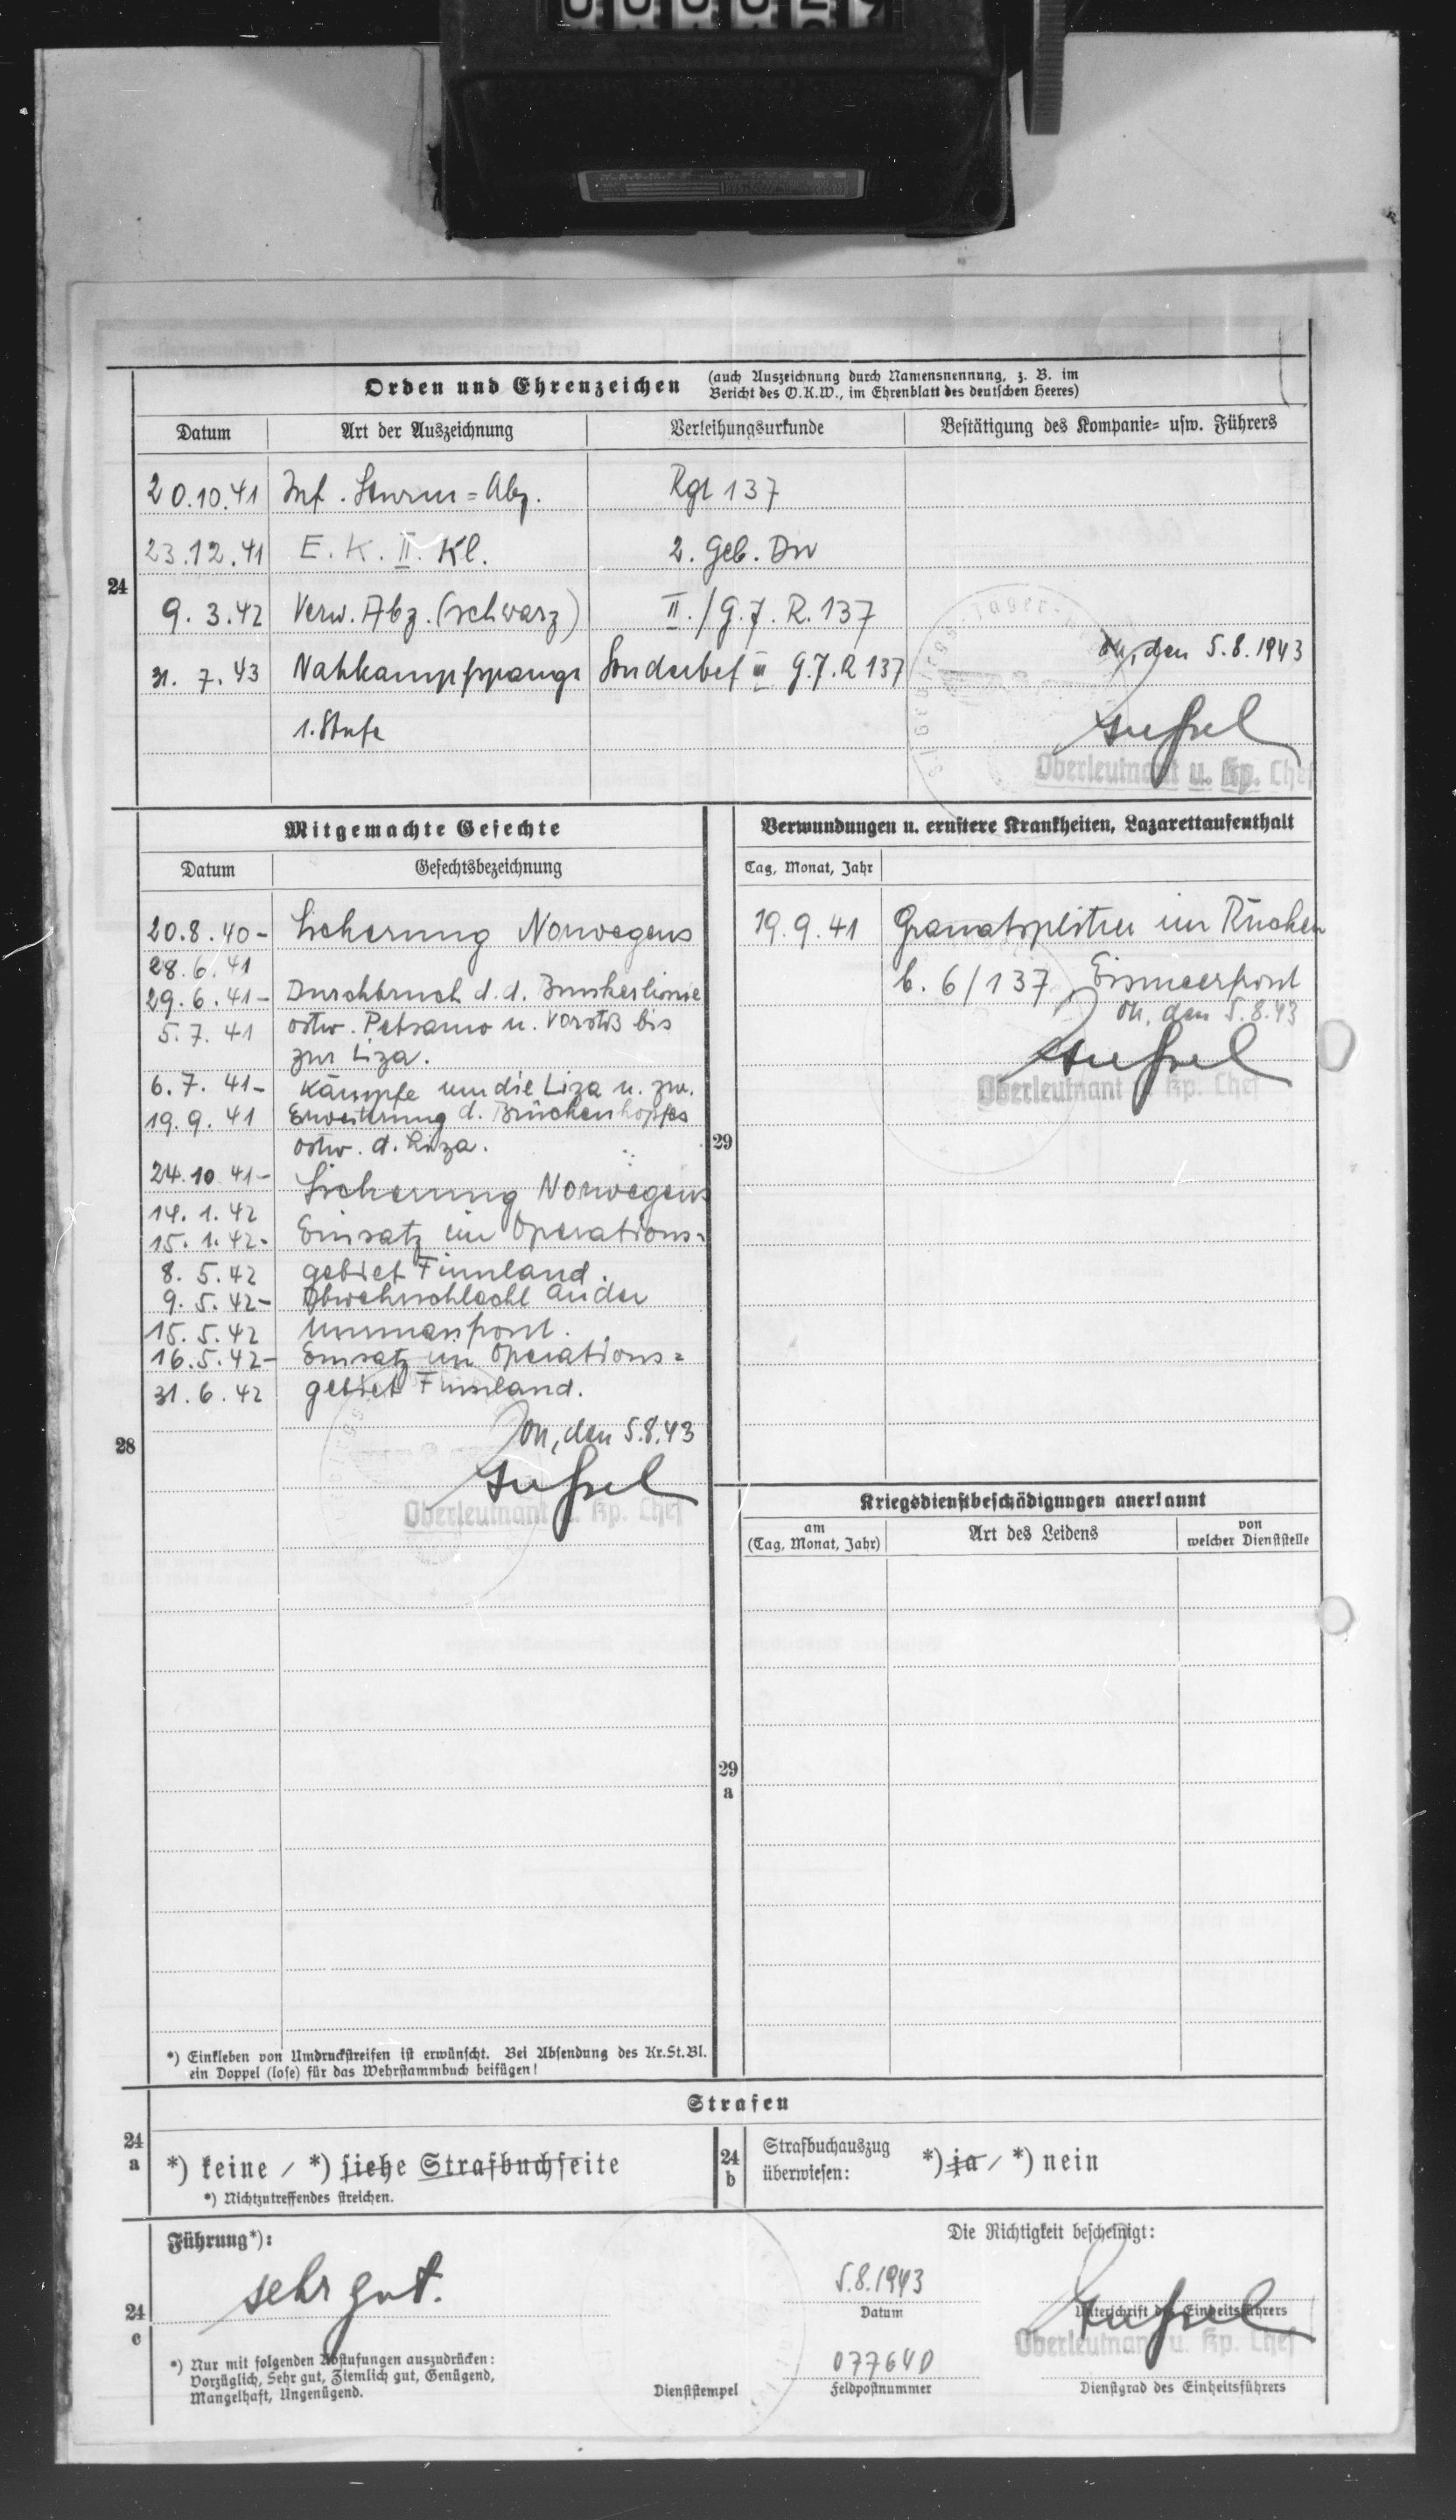 Orden und Ehrenzeichen (auch Auszeichnung durch Namensnennung, z. B. im
Bericht des O.K.W., im Ehrenblatt des deutschen Heeres)
Datum Art der Auszeichnung Verleihungsurkunde Bestätigung des Kompanie= usw. Führers
20.10.41 Inf. Sturm=Abz. Rgt 137
23.12.41 E. K. II. Kl. 2. Geb. Div
24
9. 3. 42 Verw. Abz. (schwarz) II./G.J.R. 137
ON, den 5.8.1943
31. 7. 43 Nahkampfspange Sonderbef III G.J.R 137
1. Stufe
Oberleutnant u. Kp. Chef
Mitgemachte Gefechte
Datum Gefechtsbezeichnung
20.8.40- Sicherung Norwegens
28.6.41
29.6.41- Durchbruch d. d. Bunkerlinie
5.7.41 ostw. Petsamo u. Vorstoß bis
zur Liza.
6.7.41- Kämpfe um die Liza u. zw.
19.9.41 Erweiterung d. Brückenkopfes
ostw. d. Liza.
24.10.41- Sicherung Norwegens
14.1.42
15.1.42- Einsatz im Operations=
8.5.42 gebiet Finnland.
9.5.42- Abwehrschlacht an der
15.5.42 Murmanfront.
16.5.42- Einsatz im Operations=
31.6.42 gebiet Finnland.
ON, den 5.8.43
28
Oberleutnant u. Kp. Chef
*) Einkleben von Umdruckstreifen ist erwünscht. Bei Absendung des Kr.St.Bl.
ein Doppel (lose) für das Wehrstammbuch beifügen!
Verwundungen u. ernstere Krankheiten, Lazarettaufenthalt
Tag, Monat, Jahr
19.9.41 Granatsplitter im Rücken
b. 6/137 Eismeerfront
ON, den 5.8.43
Oberleutnant u. Kp. Chef
29
Kriegsdienstbeschädigungen anerkannt
am
(Tag, Monat, Jahr) Art des Leidens von
welcher Dienststelle
29
a
Strafen
24
a
*) keine / *) siehe Strafbuchseite
*) Nichtzutreffendes streichen.
24
b
Strafbuchauszug
überwiesen: *) ja / *) nein
Führung*): Die Richtigkeit bescheinigt:
sehr gut. 5.8.1943
Datum Unterschrift des Einheitsführers
24
c
Oberleutnant u. Kp. Chef
*) Nur mit folgenden Abstufungen auszudrücken:
Vorzüglich, Sehr gut, Ziemlich gut, Genügend,
Mangelhaft, Ungenügend.
07764D
Dienststempel Feldpostnummer Dienstgrad des Einheitsführers